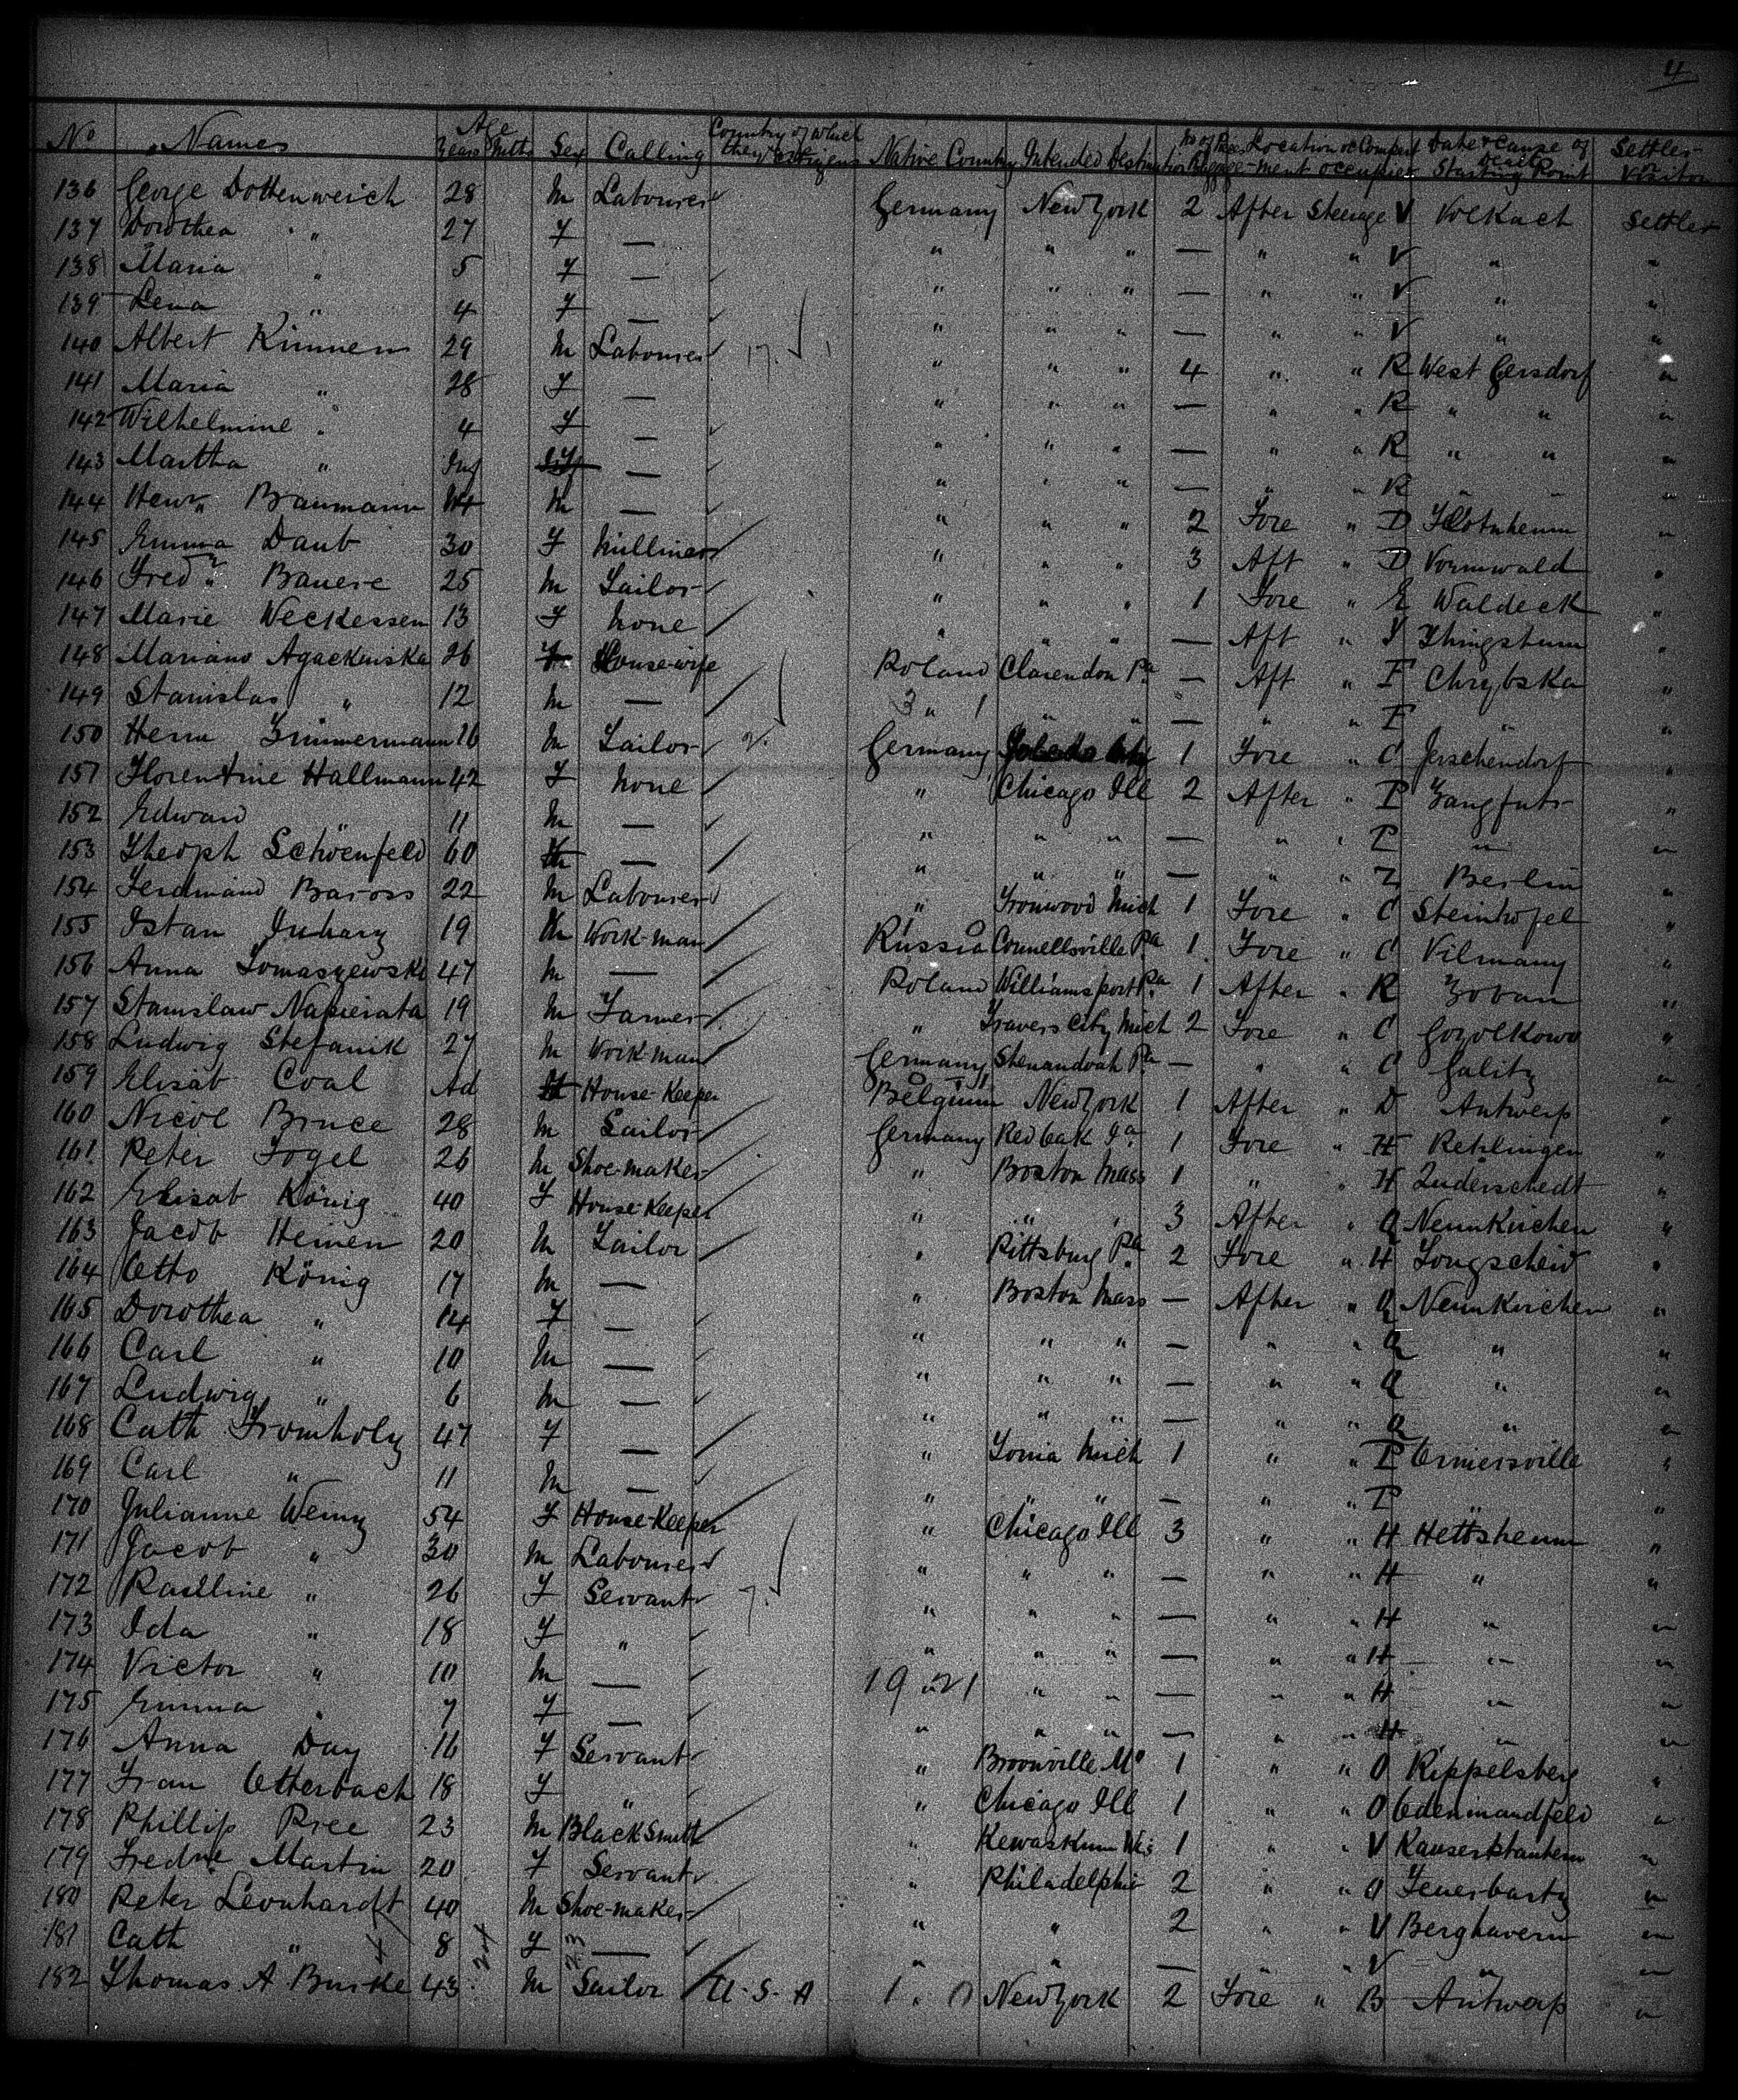 4
No Names Age Years Mths Sex Calling Country of which they are citizens Native Country Intended Destination No of Pieces Baggage Location or Compartment occupied Date & Cause of Death Starting Point Settler or Visitor
136 George Dottenweich 28 M Labourer Germany New York 2 After Steerage V Volkach Settler
137 Dorothea " 27 F — " " " — " " V " "
138 Maria " 5 F — " " " — " " V " "
139 Lena " 4 F — " " " — " " V " "
140 Albert Kimmen 29 M Labourer 17. " " " 4 " " R West Gersdorf "
141 Maria " 28 F — " " " — " " R " " "
142 Wilhelmine " 4 F — " " " — " " R " " "
143 Martha " Inf — " " " — " " R " " "
144 Henr. Baumann M — " " " 2 Fore " D "
145 Emma Daub 30 F Milliner " " " 3 Aft " D Vormwald "
146 Fred. Bauere 25 M Tailor " " " 1 Fore " E Waldeck "
147 Marie Weckessen 13 F None " " " — Aft " "
148 Mariano Agackniska 26 F House-wife Poland Clarendon Pa — Aft " P Chrybska "
149 Stanislas " 12 M — 3 " 1 " " — " " P " "
150 Herm Zimmermann 26 M Tailor 2. Germany 1 Fore " C Jerschendorf "
151 Florentine Hallmann 42 F None " Chicago Ill 2 After " P "
152 Edward 11 M — " " " — " " P " "
153 Theoph Schöenfeld 60 — " " " — " " Berlin "
154 Ferdinand Baross 22 M Labourer " Ironwood Mich 1 Fore " C Steinhofel "
155 Istan Juhary 19 M Work-man Russia Connellsville Pa 1 Fore " C Vilmany "
156 Anna Tomaszewski 47 M — Poland Williamsport Pa 1 After " R "
157 Stanislaw Napierata 19 M Farmer " Travers City Mich 2 Fore " C Gozolkowo "
158 Ludwig Stefanik 27 M Workman Germany Shenandoah Pa — " " C Galitz "
159 Elisab Coal Ad House-Keeper Belgium New York 1 After " D Antwerp "
160 Nicol Bruce 28 M Tailor Germany Red Oak Ia 1 Fore " H Rehlingen "
161 Peter Fogel 26 M Shoe-maker " Boston Mass 1 " " H Züderschedt "
162 Elisab König 40 F House-Keeper " " " 3 After " Q Neunkirchen "
163 Jacob Heinen 20 M Tailor " Pittsburg Pa 2 Fore " H Longscheid "
164 Otto König 17 M — " Boston Mass — After " Q Neunkirchen "
165 Dorothea " 14 F — " " " — " " Q " "
166 Carl " 10 M — " " " — " " Q " "
167 Ludwig " 6 M — " " " — " " Q " "
168 Cath Fromholz 47 F — " Ionia Mich 1 " " P Ormersville "
169 Carl " 11 M — " " " — " " P "
170 Julianne Weinz 54 F House-Keeper " Chicago Ill 3 " " H Hettsheim "
171 Jacob " 30 M Labourer " " " — " " H " "
172 Paulline " 26 F Servant 7. " " " — " " H " "
173 Ida " 18 F " " " " — " " H " "
174 Victor " 10 M — 19 " 21 " " — " " H " "
175 Emma " 7 F — " " " — " " H " "
176 Anna Day 16 F Servant " Broonville Mo 1 " " O Rippelsberg "
177 Fran Otterbach 18 F " " Chicago Ill 1 " " O "
178 Phillip Pree 23 M Blacksmith " Kewaskum Wis 1 " " V "
179 Fredne Martin 20 F Servant " Philadelphia 2 " " O "
180 Peter Leonhardt 40 M Shoe-maker " " 2 " " V Berghavern "
181 Cath " 8 F — " " — " " V " "
182 Thomas A Burke 43 M Sailor U. S. A 1 " New York 2 Fore " B Antwerp "